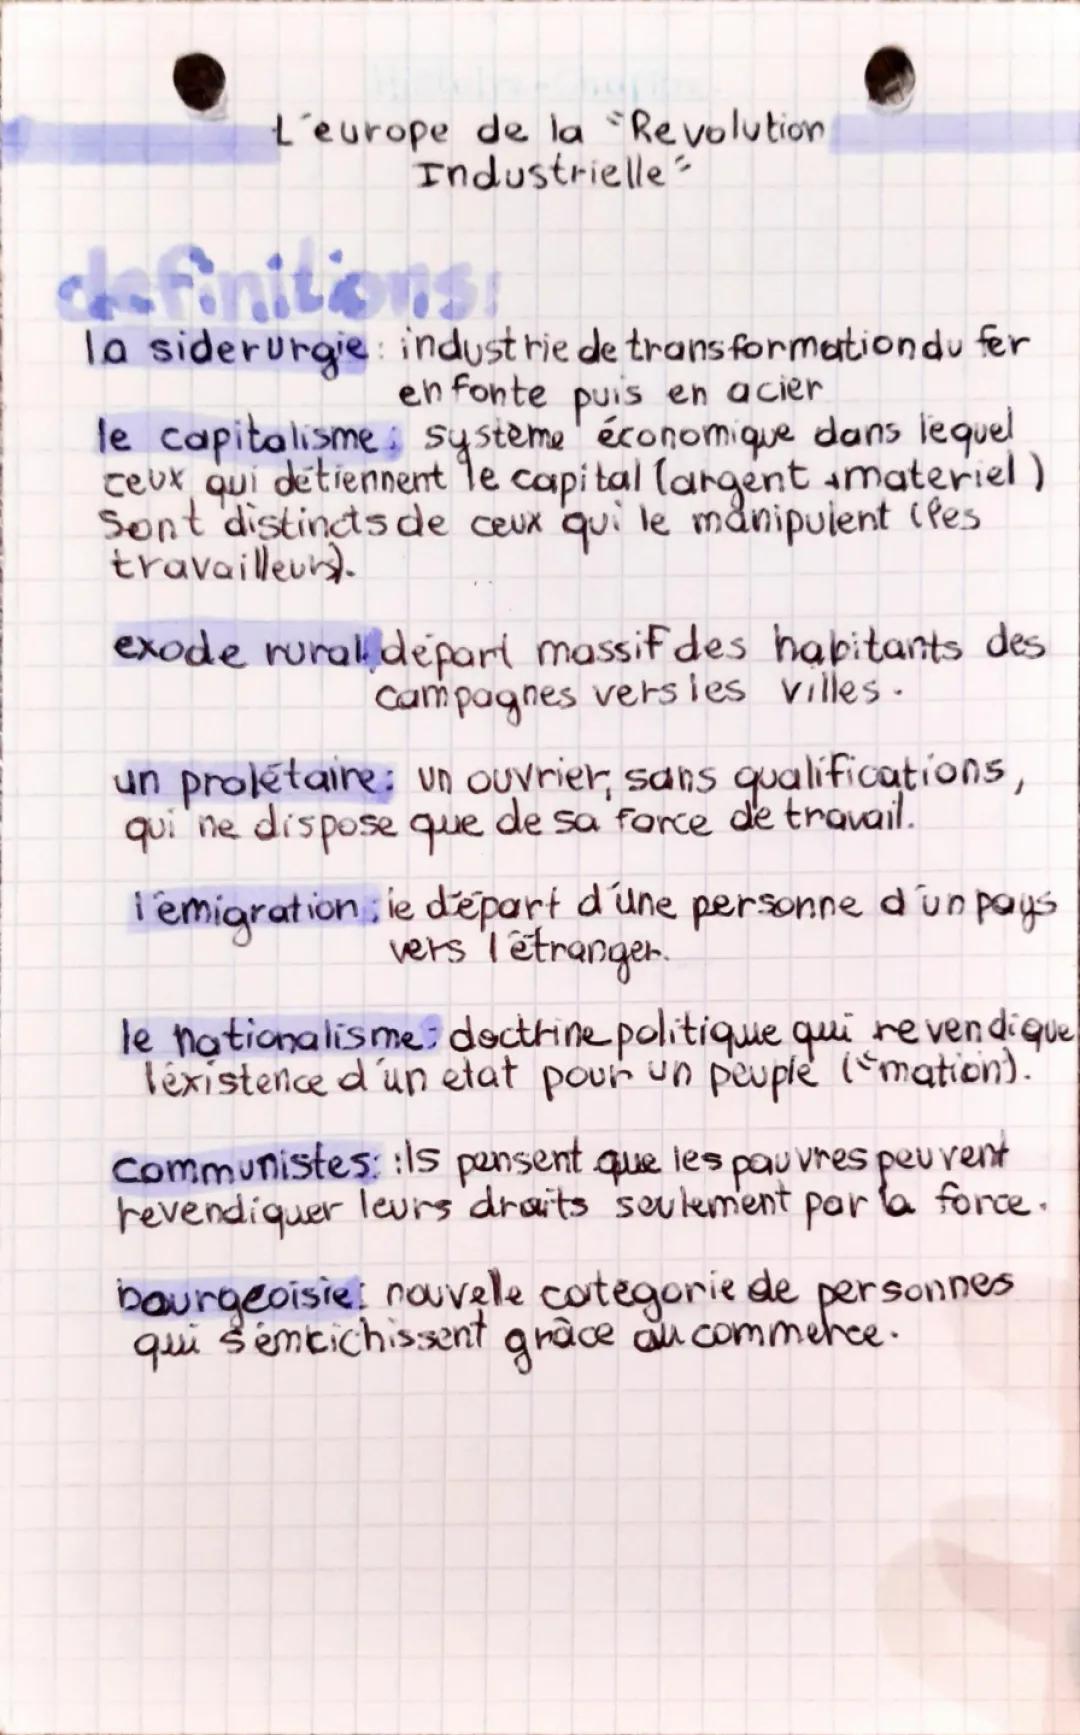 L'europe de la "Revolution
Industrielle"
definitions:
la siderurgie: industrie de transformation du fer
en fonte puis en acier
le capitalisme: système économique dans lequel
ceux qui détiennent le capital (argent + materiel)
sont distincts de ceux qui le manipulent (les
travailleurs).
exode rural: départ massif des habitants des
campagnes vers les villes.
un prolétaire: un ouvrier, sans qualifications,
qui ne dispose que de sa force de travail.
l'émigration: le départ d'une personne d'un pays
vers l'étranger.
le nationalisme: doctrine politique qui revendique
l'existence d'un etat pour un peuple ("mation).
communistes: ils pensent que les pauvres peuvent
revendiquer leurs droits seulement par la force.
bourgeoisie: nouvele catégorie de personnes
qui s'enrichissent grâce au commerce.